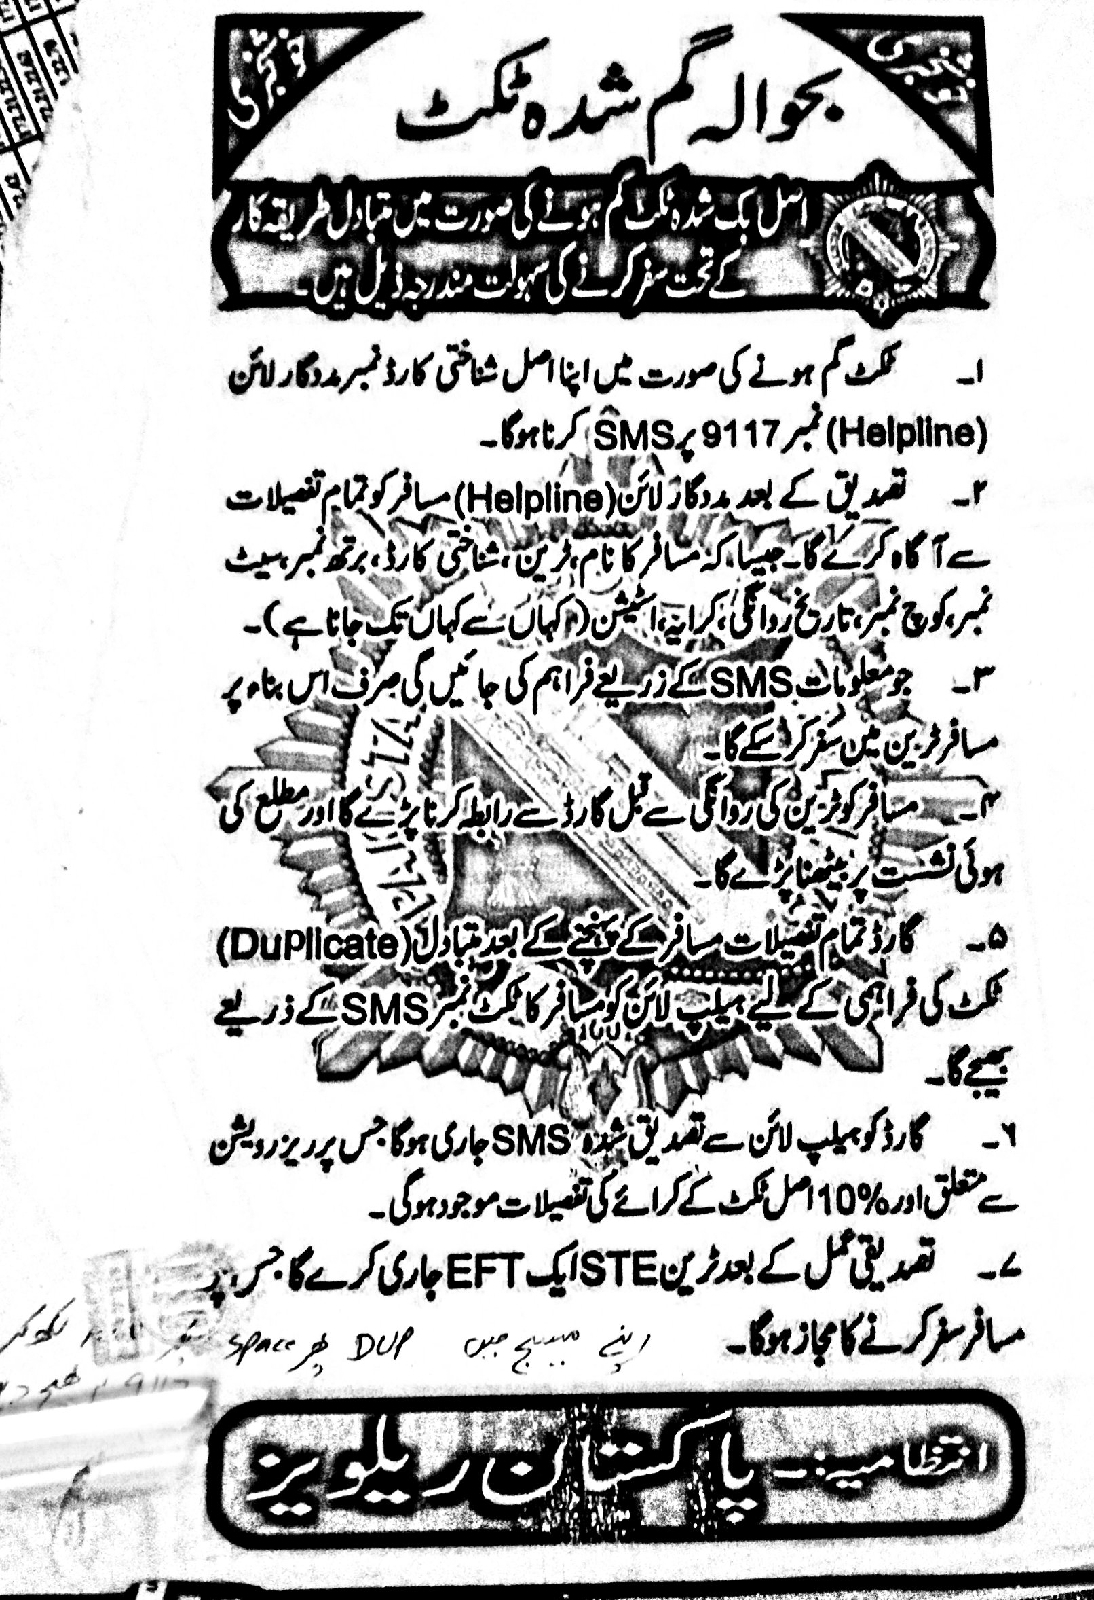 خوشخبری
خوشخبری
بحوالہ گم شدہ ٹکٹ
اصل بک شدہ ٹکٹ گم ہونے کی صورت میں متبادل طریقہ کار
کے تحت سفر کرنے کی سہولت مندرجہ ذیل ہیں۔
۱۔ ٹکٹ گم ہونے کی صورت میں اپنا اصل شناختی کارڈ نمبر مددگار لائن
(Helpline) نمبر 9117 پر SMS کرنا ہوگا۔
۲۔ تصدیق کے بعد مددگار لائن (Helpline) مسافر کو تمام تفصیلات
سے آگاہ کرے گا۔ جیسا کہ مسافر کا نام، ٹرین، شناختی کارڈ، برتھ نمبر، سیٹ
نمبر، کوچ نمبر، تاریخ روانگی، کرایہ، اسٹیشن (کہاں سے کہاں تک جانا ہے)۔
۳۔ جو معلومات SMS کے زریعے فراہم کی جائیں گی صرف اس بناء پر
مسافر ٹرین میں سفر کر سکے گا۔
۴۔ مسافر کو ٹرین کی روانگی سے قبل گارڈ سے رابطہ کرنا پڑے گا اور مطلع کی
ہوئی نشست پر بیٹھنا پڑے گا۔
۵۔ گارڈ تمام تفصیلات مسافر کے پہنچنے کے بعد متبادل (DuPlicate)
ٹکٹ کی فراہمی کے لیے ہیلپ لائن کو مسافر کا ٹکٹ نمبر SMS کے ذریعے
بھیجے گا۔
۶۔ گارڈ کو ہیلپ لائن سے تصدیق شدہ SMS جاری ہوگا جس پر ریزرویشن
سے متعلق اور 10% اصل ٹکٹ کے کرائے کی تفصیلات موجود ہوگی۔
۷۔ تصدیقی عمل کے بعد ٹرین STE ایک EFT جاری کرے گا جس پر
مسافر سفر کرنے کا مجاز ہوگا۔
اپنے میسج میں DUP پھر Space
انتظامیہ:۔ پاکستان ریلویز